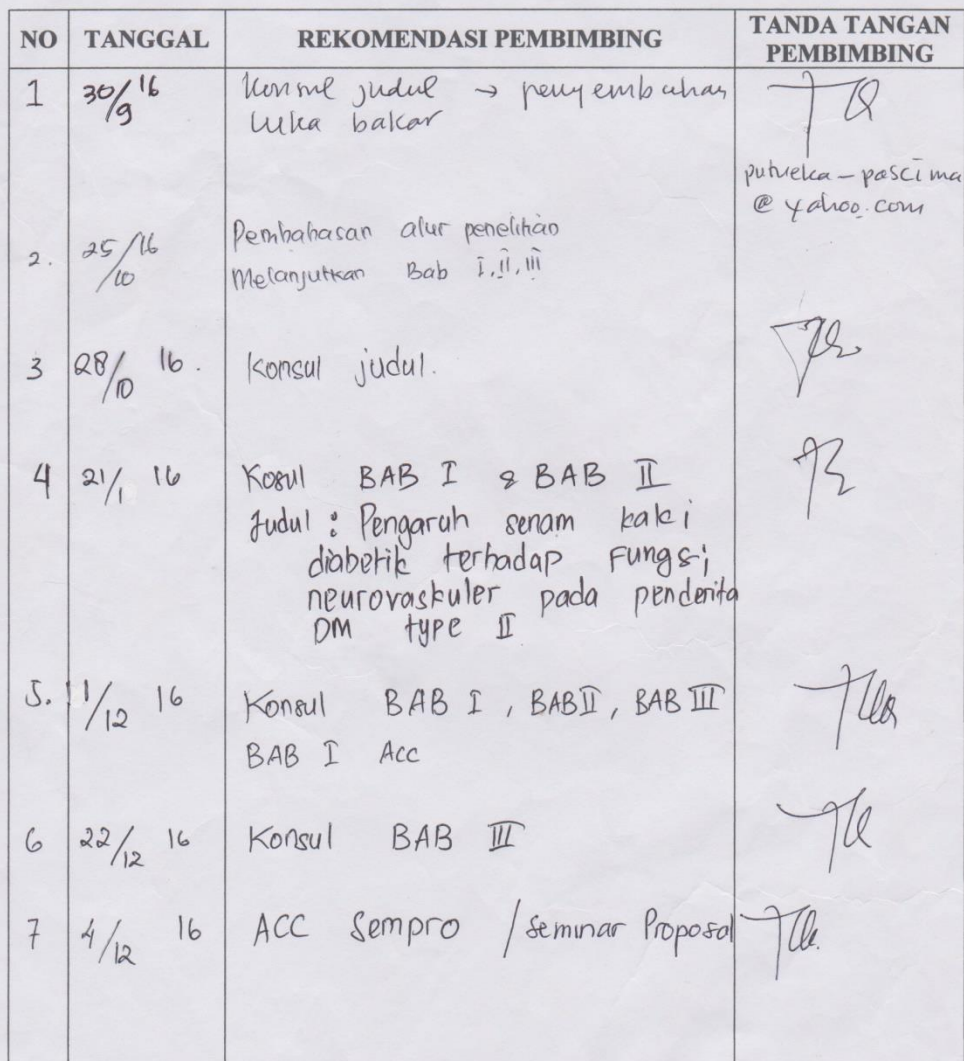 NO TANGGAL REKOMENDASI PEMBIMBING TANDA TANGAN
PEMBIMBING
1 30/9 16 Konsul judul → penyembuhan
luka bakar
putueka-pascima
@yahoo.com
2. 25/10 16 Pembahasan alur penelitian
Melanjutkan Bab I, II, III
3 28/10 16. Konsul judul.
4 21/1 16 Kosul BAB I & BAB II
Judul : Pengaruh senam kaki
diabetik terhadap Fungsi
neurovaskuler pada penderita
DM type II
5. 1/12 16 Konsul BAB I, BAB II, BAB III
BAB I Acc
6 22/12 16 Konsul BAB III
7 4/12 16 ACC Sempro / Seminar Proposal